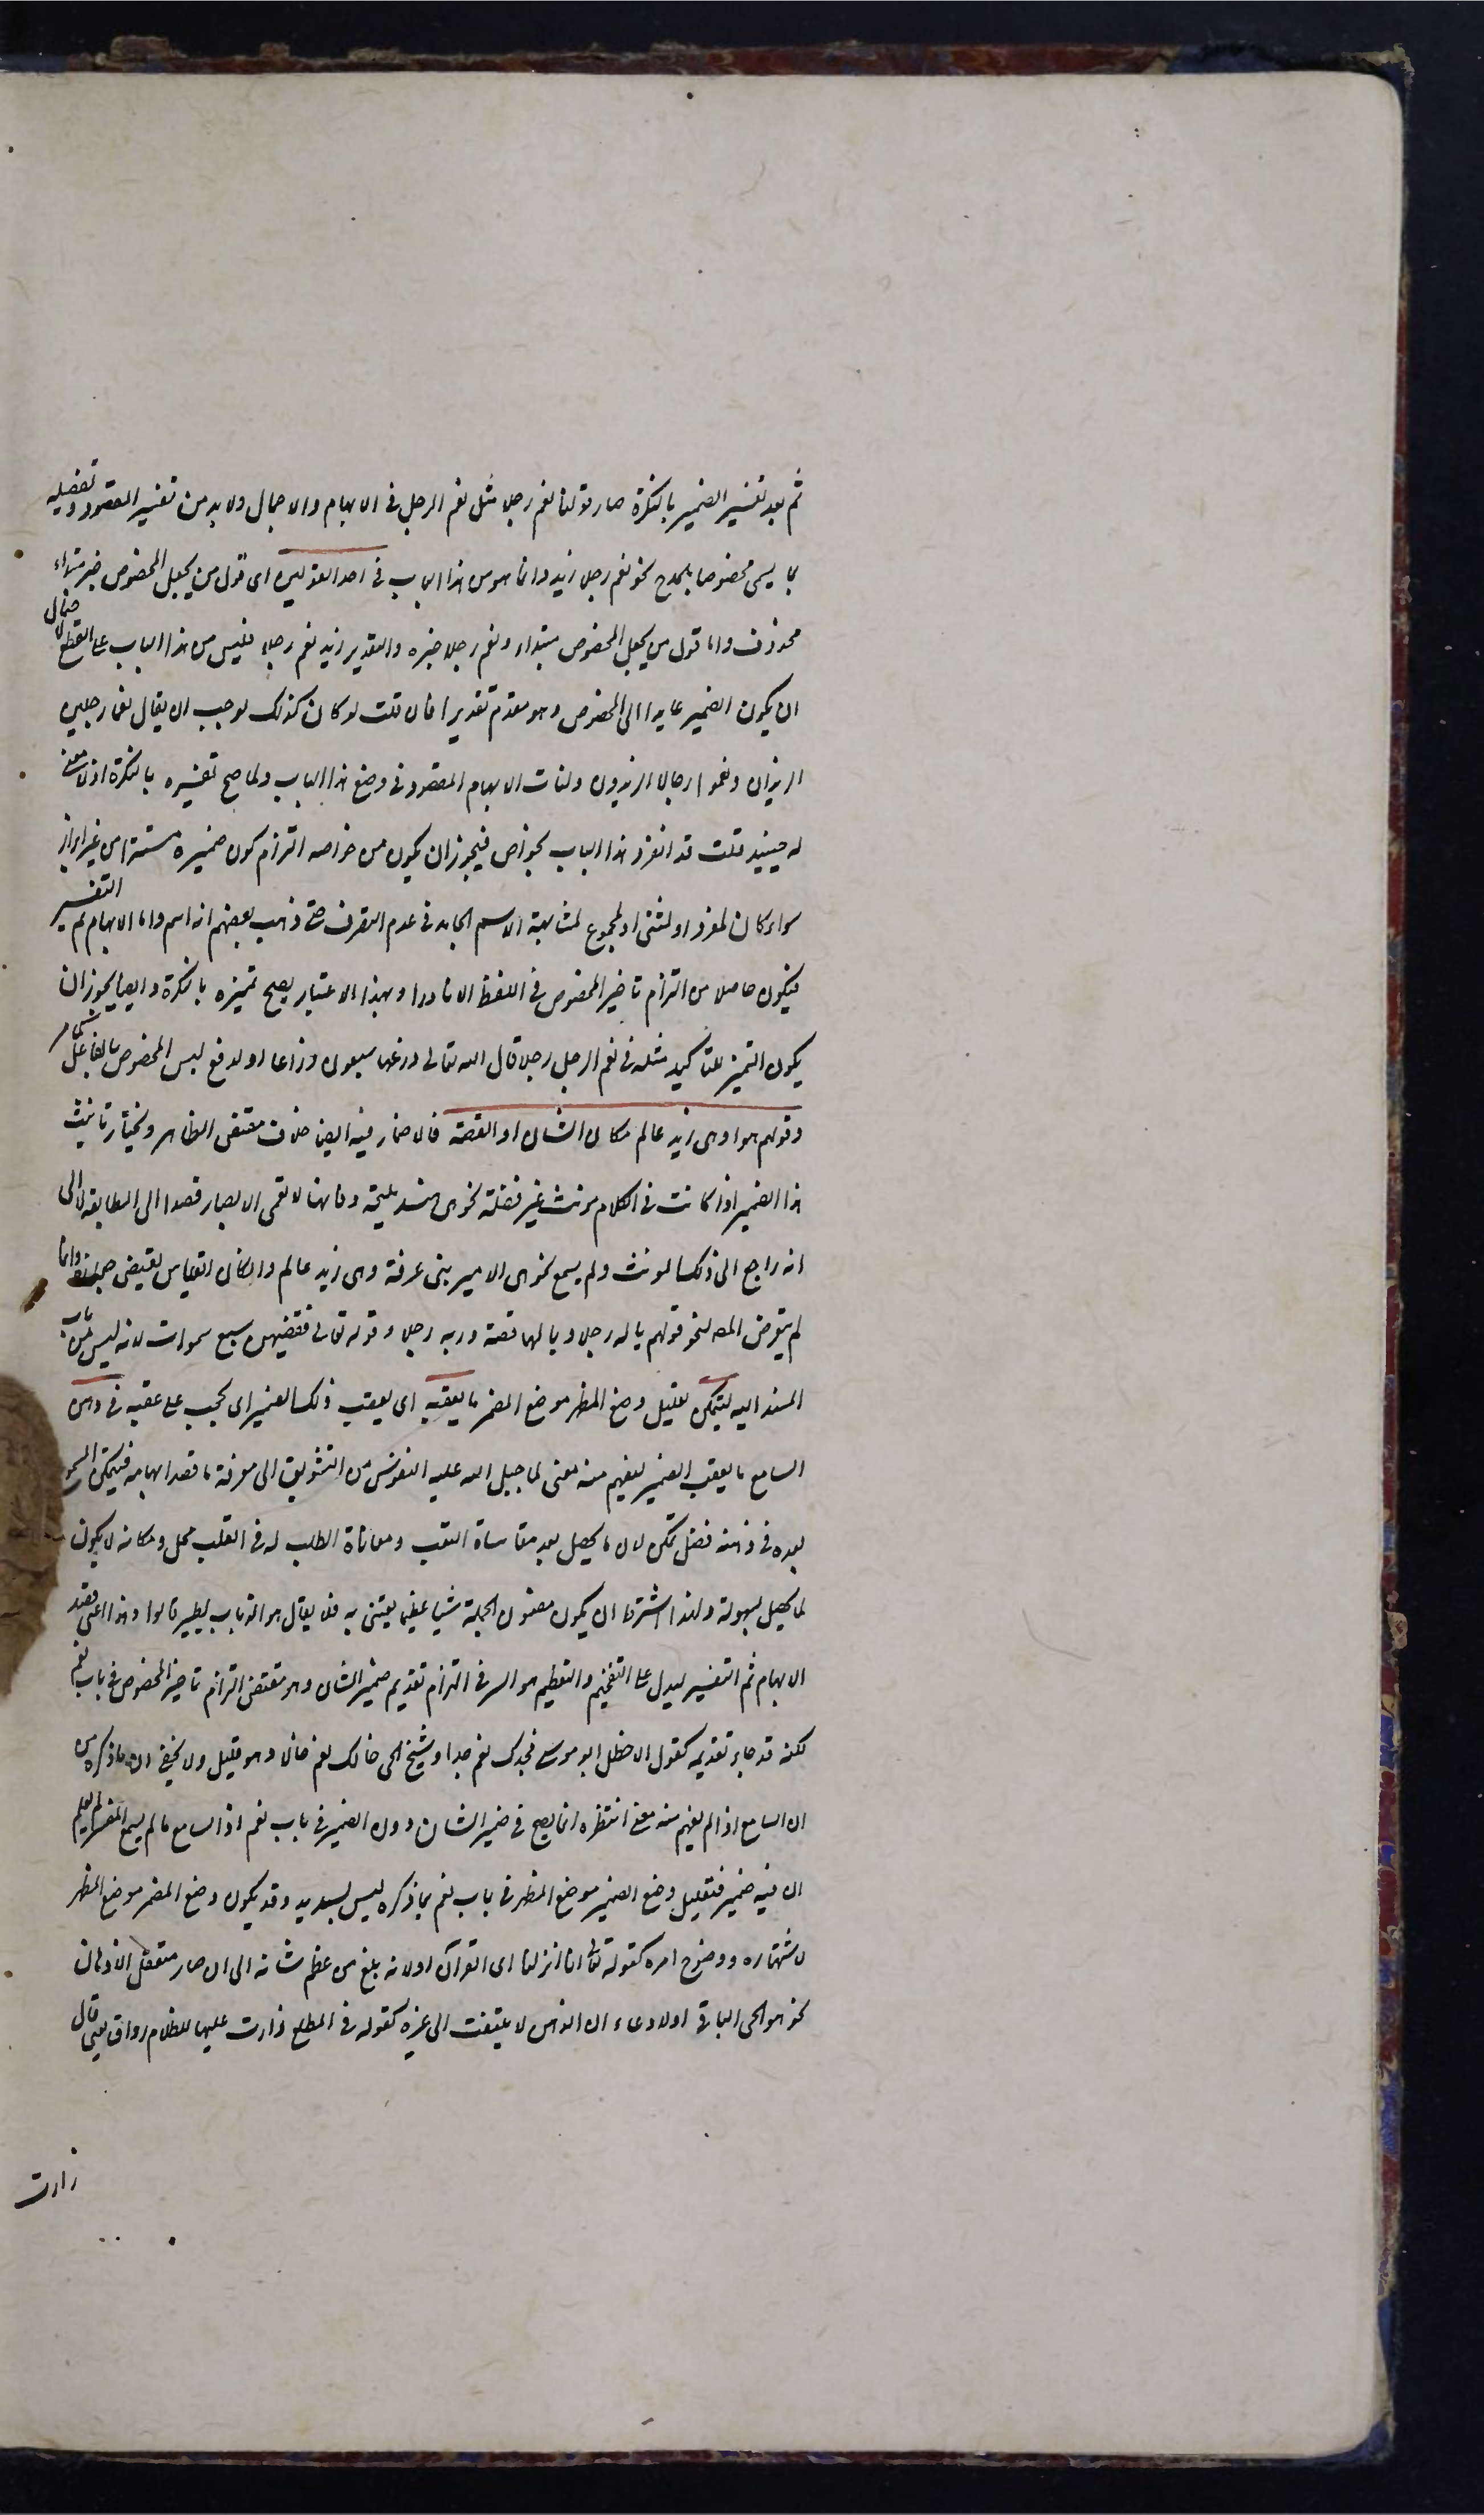 ثم بعد تفسير الضمير بالنكرة صار قولنا نعم رجلا مثل نعم الرجل فى الابهام والاجمال ولا بد من تفسير المقصود وتفصيله
بما يسمى مخصوصا بالمدح نحو نعم رجلا زيد وانما هو من هذا الباب فى احد القولين اى قول من يجعل المخصوص خبر مبتداء
محذوف واما قول من يجعل المخصوص مبتداء ونعم رجلا خبره والتقدير زيد نعم رجلا فليس من هذا الباب على القطع لاحتمال
ان يكون الضمير عايدا الى المخصوص وهو مقدم تقديرا فان قلت لو كان كذلك لوجب ان يقال نعما رجلين
الزيدان ونعموا رجالا الزيدون ولفات الابهام المقصود فى وضع هذا الباب ولما صح تفسيره بالنكرة اذ لا معنى
له حينيذ قلت قد انفرد هذا الباب بخواص فيجوز ان يكون من خواصه التزام كون ضميره مستترا من غير ابراز
سواء كان لمفرد او لمثنى او لمجموع لمشابهة الاسم الجامد فى عدم التصرف حتى ذهب بعضهم انه اسم واما الابهام ثم التفسير
فيكون حاصلا من التزام تاخير المخصوص فى اللفظ الا نادرا وبهذا الاعتبار يصح تمييزه بالنكرة وايضا يجوز ان
يكون التمييز للتاكيد مثله فى نعم الرجل رجلا قال الله تعالى ذرعها سبعون ذراعا او لدفع لبس المخصوص بالفاعل
وقولهم هو او هى زيد عالم مكان الشان او القصة فالاضمار فيه ايضا خلاف مقتضى الظاهر ويختار تانيث
هذا الضمير اذا كانت فى الكلام مونث غير فضلة نحو هى هند مليحة وفانها لا تعمى الابصار قصدا الى المطابقة لا الى
انه راجع الى ذلك المونث ولم يسمع نحو هى الامير بنى غرفة وهى زيد عالم وان كان القياس يقتضى جوازه وانما
لم يتعرض المص لنحو قولهم يا له رجلا ويا لها قصة وربه رجلا وقوله تعالى فقضيهن سبع سموات لانه ليس من باب
المسند اليه ليتمكن تعليل وضع المظهر موضع المضمر ما يعقبه اى يعقب ذلك الضمير اى يجب على عقبه فى ذهن
السامع ما يعقب الضمير ليفهم منه معنى لما جبل الله عليه النفوس من التشويق الى معرفة ما قصد ابهامه فيتمكن المسموع
بعده فى ذهنه فضل تمكن لان ما يحصل بعد مقاساة التعب ومعاناة الطلب له فى القلب محل ومكانه لا يكون
لما يحصل بسهولة ولهذا اشترط ان يكون مضمون الجملة شيا عظيما يعتنى به فلا يقال هو الذباب يطير قالوا وهذا اعنى قصد
الابهام ثم التفسير ليدل على التفخيم والتعظيم هو السر فى التزام تقديم ضمير الشان وهو مقتضى التزام تاخير المخصوص فى باب نعم
لكنه قد جاء تقديمه كقول الاخطل ابو موسى فجدك نعم جدا وشيخ الحى خالك نعم خالا وهو قليل ولا يخفى ان ما ذكره من
ان السامع اذا لم يفهم منه معنى انتظره انما يصح فى ضمير الشان دون الضمير فى باب نعم اذ السامع ما لم يسمع المفسر لم يعلم
ان فيه ضمير فتعليل وضع الضمير موضع المظهر فى باب نعم بما ذكره ليس بسديد وقد يكون وضع المضمر موضع المظهر
لاشتهاره ووضوح امره كقوله تعالى انا انزلنا اى القرآن او لانه بلغ من عظم شانه الى ان صار متعقل الاذهان
نحو هو الحى الباقى او لادعاء ان الذهن لا يلتفت الى غيره كقوله فى المطلع زارت عليها للظلام رواق يعنى قال
زارت